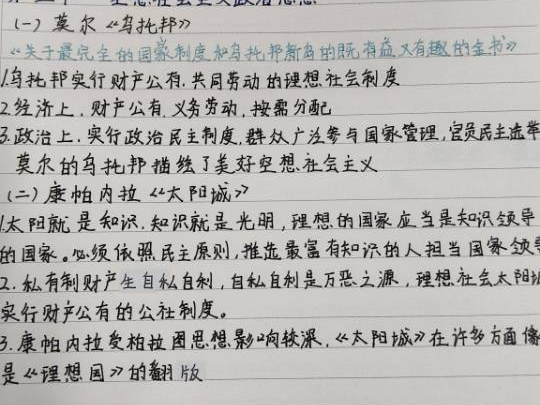 (一) 莫尔《乌托邦》
《关于最完全的国家制度和乌托邦新岛的既有益又有趣的金书》
1.乌托邦实行财产公有,共同劳动的理想社会制度
2.经济上,财产公有,义务劳动,按需分配
3.政治上,实行政治民主制度,群众广泛参与国家管理,官员民主选举
莫尔的乌托邦描绘了美好空想社会主义
(二) 康帕内拉《太阳城》
1.太阳就是知识,知识就是光明,理想的国家应当是知识领导
的国家。必须依照民主原则,推选最富有知识的人担当国家领导
2.私有制财产生自私自利,自私自利是万恶之源,理想社会太阳城
实行财产公有的公社制度。
3.康帕内拉受柏拉图思想影响较深,《太阳城》在许多方面像
是《理想国》的翻版